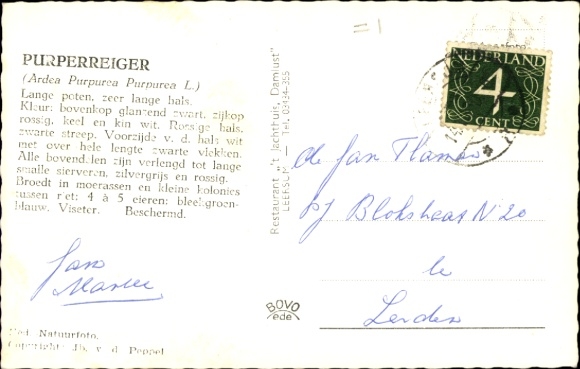 PURPERREIGER
(Ardea Purpurea Purpurea L.)
Lange poten, zeer lange hals.
Kleur: bovenkop glanzend zwart, zijkop
rossig, keel en kin wit. Rossige hals,
zwarte streep. Voorzijde v. d. hals wit
met over hele lengte zwarte vlekken.
Alle bovendelen zijn verlengd tot lange
smalle sierveren, zilvergrijs en rossig.
Broedt in moerassen en kleine kolonies
tussen riet; 4 à 5 eieren; bleekgroen-
blauw. Viseter. Beschermd.
Jan
Ned. Natuurfoto.
Copyright: Jb. v. d. Peppel
Restaurant „'t Jachthuis, Damlust"
LEERSUM — Tel. 03434-355
BOVO
ede
NEDERLAND
4
CENT
Jan
N 20
te
Leiden